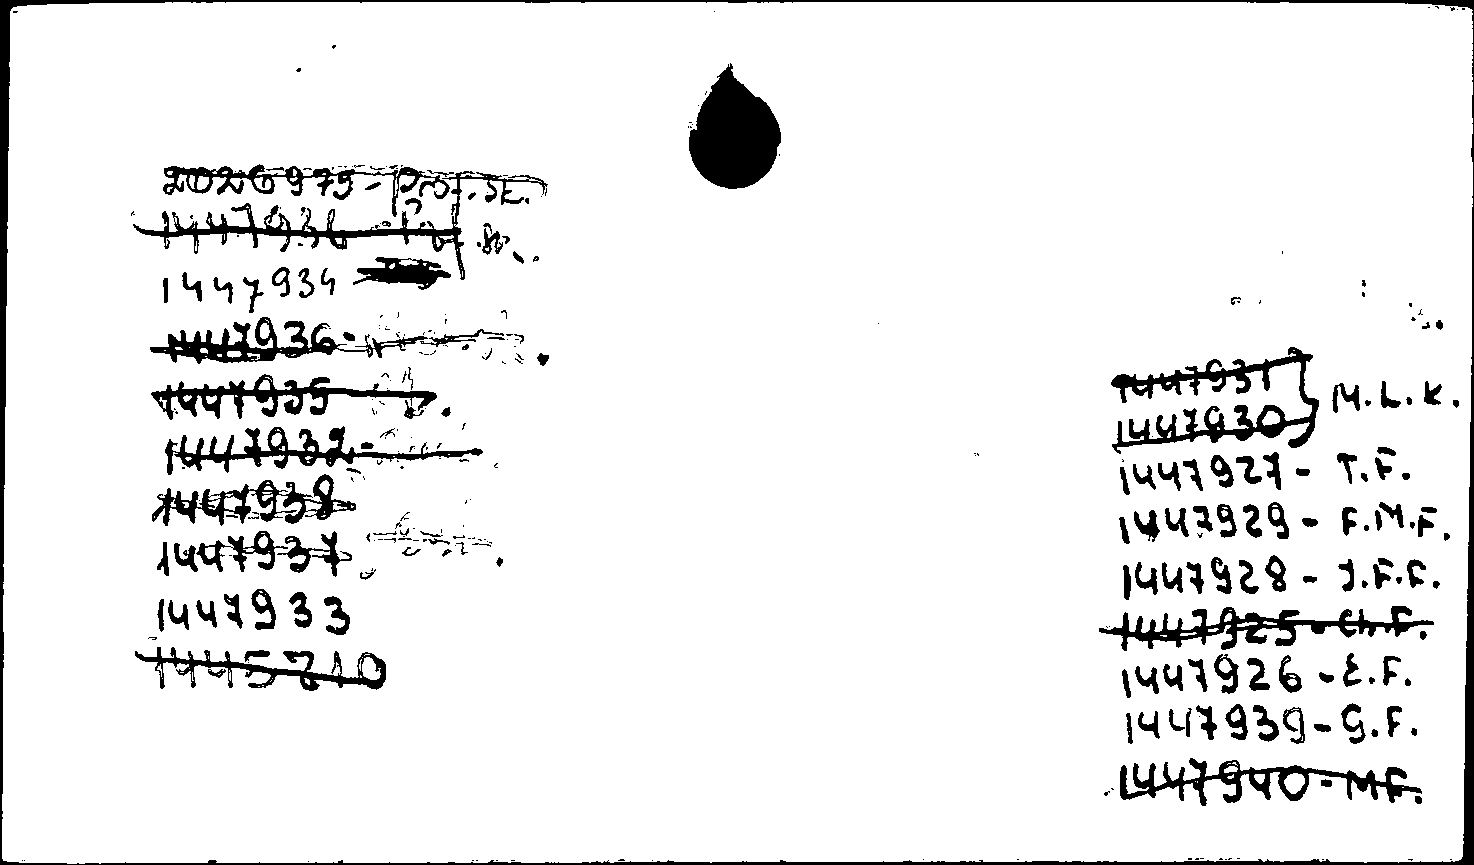 2026979 - Prof. St.
1447936
1447934
1447936 -
1447935
1447932 -
1447938
1447937
1447933
1445210
1447931
1447930 } M.L.K.
1447927 - T.F.
1447929 - F.M.F.
1447928 - J.F.F.
1447925 - Ch.F.
1447926 - E.F.
1447939 - G.F.
1447940 - M.F.